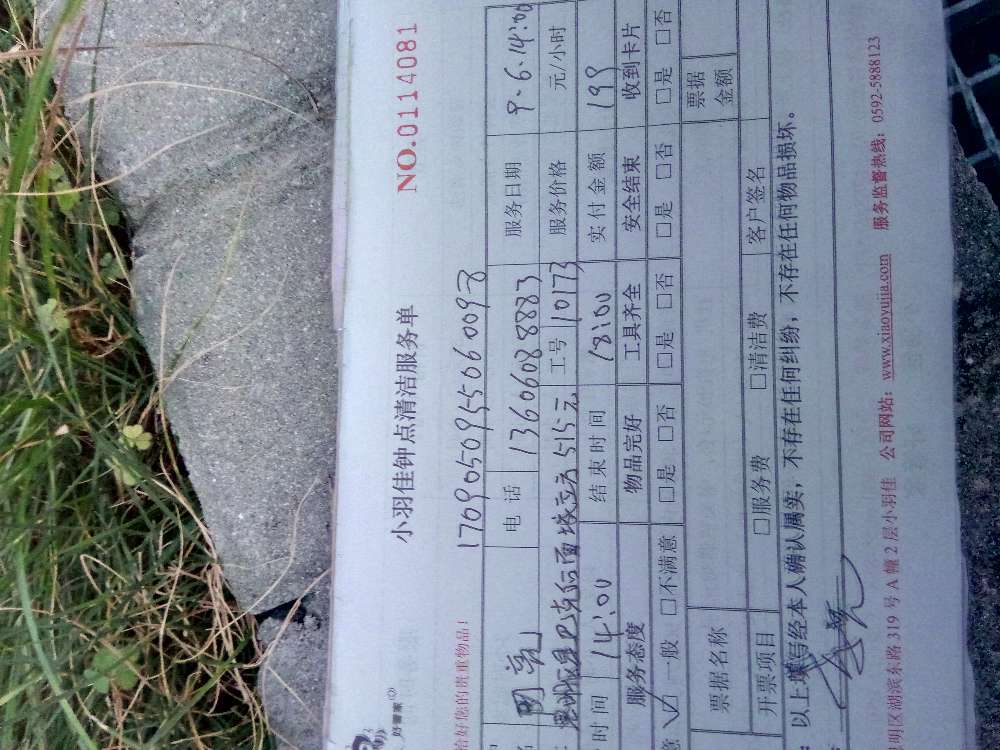 NO.0114081
小羽佳钟点清洁服务单
好管家
给好您的贵重物品!
170905095506009
电 话 13606088883 服务日期 9.6.14:00
515元 工号 10173 服务价格 元/小时
时间 14:00 结束时间 18:00 实付金额 199
服务态度 物品完好 工具齐全 安全结束 收到卡片
意 ☑一般 □不满意 □是 □否 □是 □否 □是 □否 □是 □否
票据名称 票据金额
开票项目 □服务费 □清洁费 客户签名
以上填写经本人确认属实,不存在任何纠纷,不存在任何物品损坏。
明区湖滨东路 319 号 A 幢 2 层小羽佳 公司网站:www.xiaoyujia.com 服务监督热线:0592-5888123